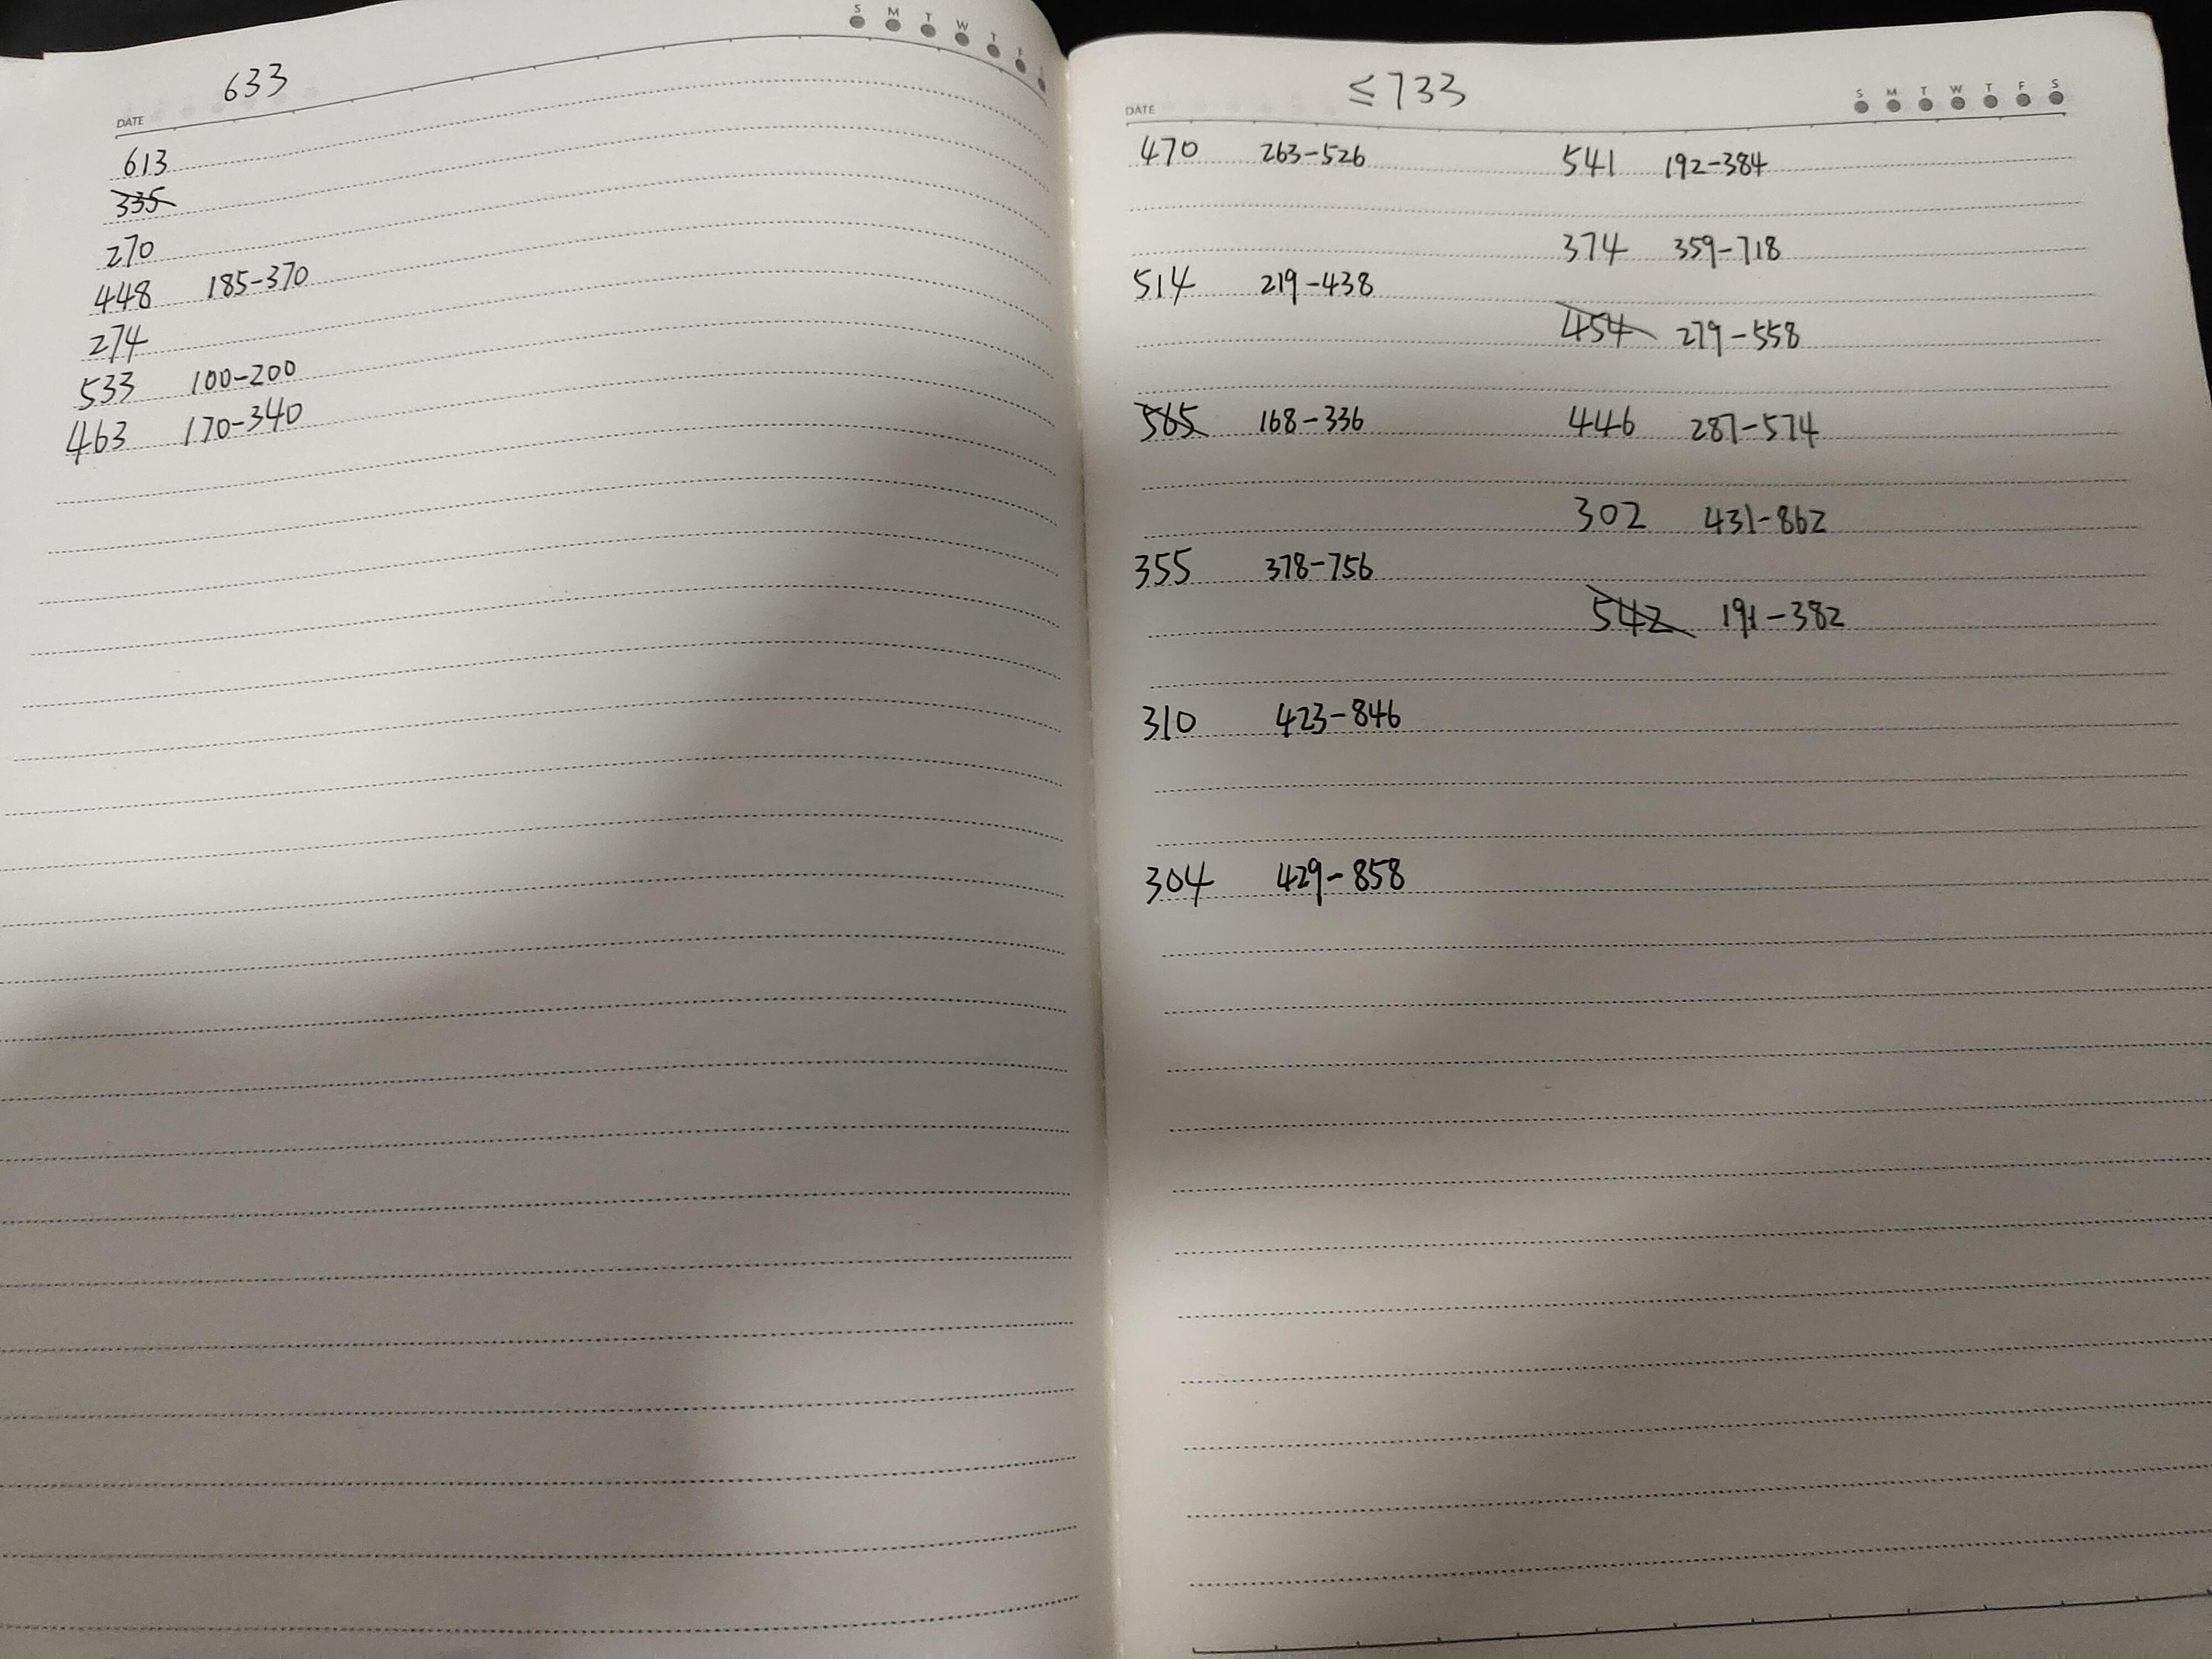 S M T W T F S
633
DATE
613
335
270
448 185-370
274
533 100-200
463 170-340
≤733
DATE
S M T W T F S
470 263-526
514 219-438
565 168-336
355 378-756
310 423-846
304 429-858
541 192-384
374 359-718
454 279-558
446 287-574
302 431-862
542 191-382